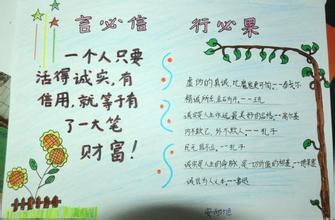 言必信 行必果
一个人只要
活得诚实,有
信用,就等于有
了一大笔
财富!
虚伪的真诚,比魔鬼更可怕--泰戈尔
精诚所至,金石为开。--王充
诚实是人生永远最美好的品格--高尔基
内不欺己,外不欺人--孔子
民无信不立--孔子
诚实是人生的命脉,是一切价值的根基--德莱塞
诚信为人之本--鲁迅